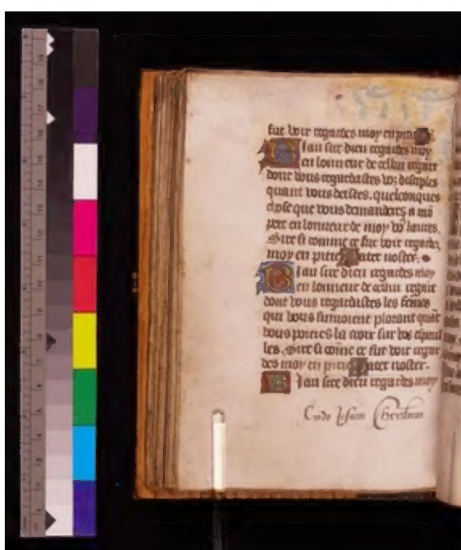 fut voir regardes moy en pitie
Biau sire dieu regardes moy
en lonneur de cellui regart
dont vous regardastes voz disciples
quant vous deistes, quelconques
chose que vous demanderez a mō
pere en lonneur de moy vo laures.
Sire si comme ce fut voir regardes
moy en pitie Pater noster.
Biau sire dieu regardes moy
en lonneur de cellui regart
dont vous regardastes les femes
qui vous suivoient plorant quāt
vous porties la croix sur vos espaul
les. Sire si cōme ce fut voir regar
des moy en pitie Pater noster.
Biau sire dieu regardes moy
Credo Jesum Christum